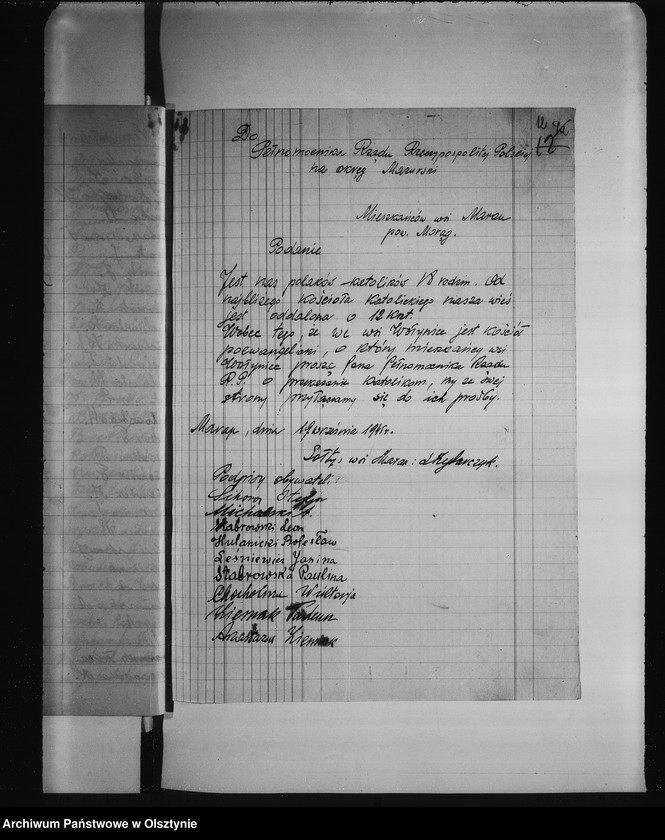 12 96
12
Do
Pełnomocnika Rządu Rzeczypospolitej Polskiej
na okręg Mazurski
Mieszkańców wsi Maran
pow. Morąg.
Podanie
Jest nas polaków – katolików 18 rodzin. Od
najbliższego kościoła katolickiego nasza wieś
jest oddalona o 12 kmt.
Wobec tego, że we wsi Wołynice jest kościół
poewangielicki, o który mieszkańcy wsi
Wołynice proszą Pana Pełnomocnika Rządu
R.P. o przekazanie katolikom, my ze swej
strony przyłączamy się do ich prośby.
Maran, dnia 19 września 1945r.
Sołtys wsi Maran:
Podpisy obywateli:
Sikora Stefan
Michalski
Stabrowski Leon
Hulanicki Bolesław
Leśniewicz Janina
Stabrowska Paulina
Wiktorja
Tadeusz
Archiwum Państwowe w Olsztynie